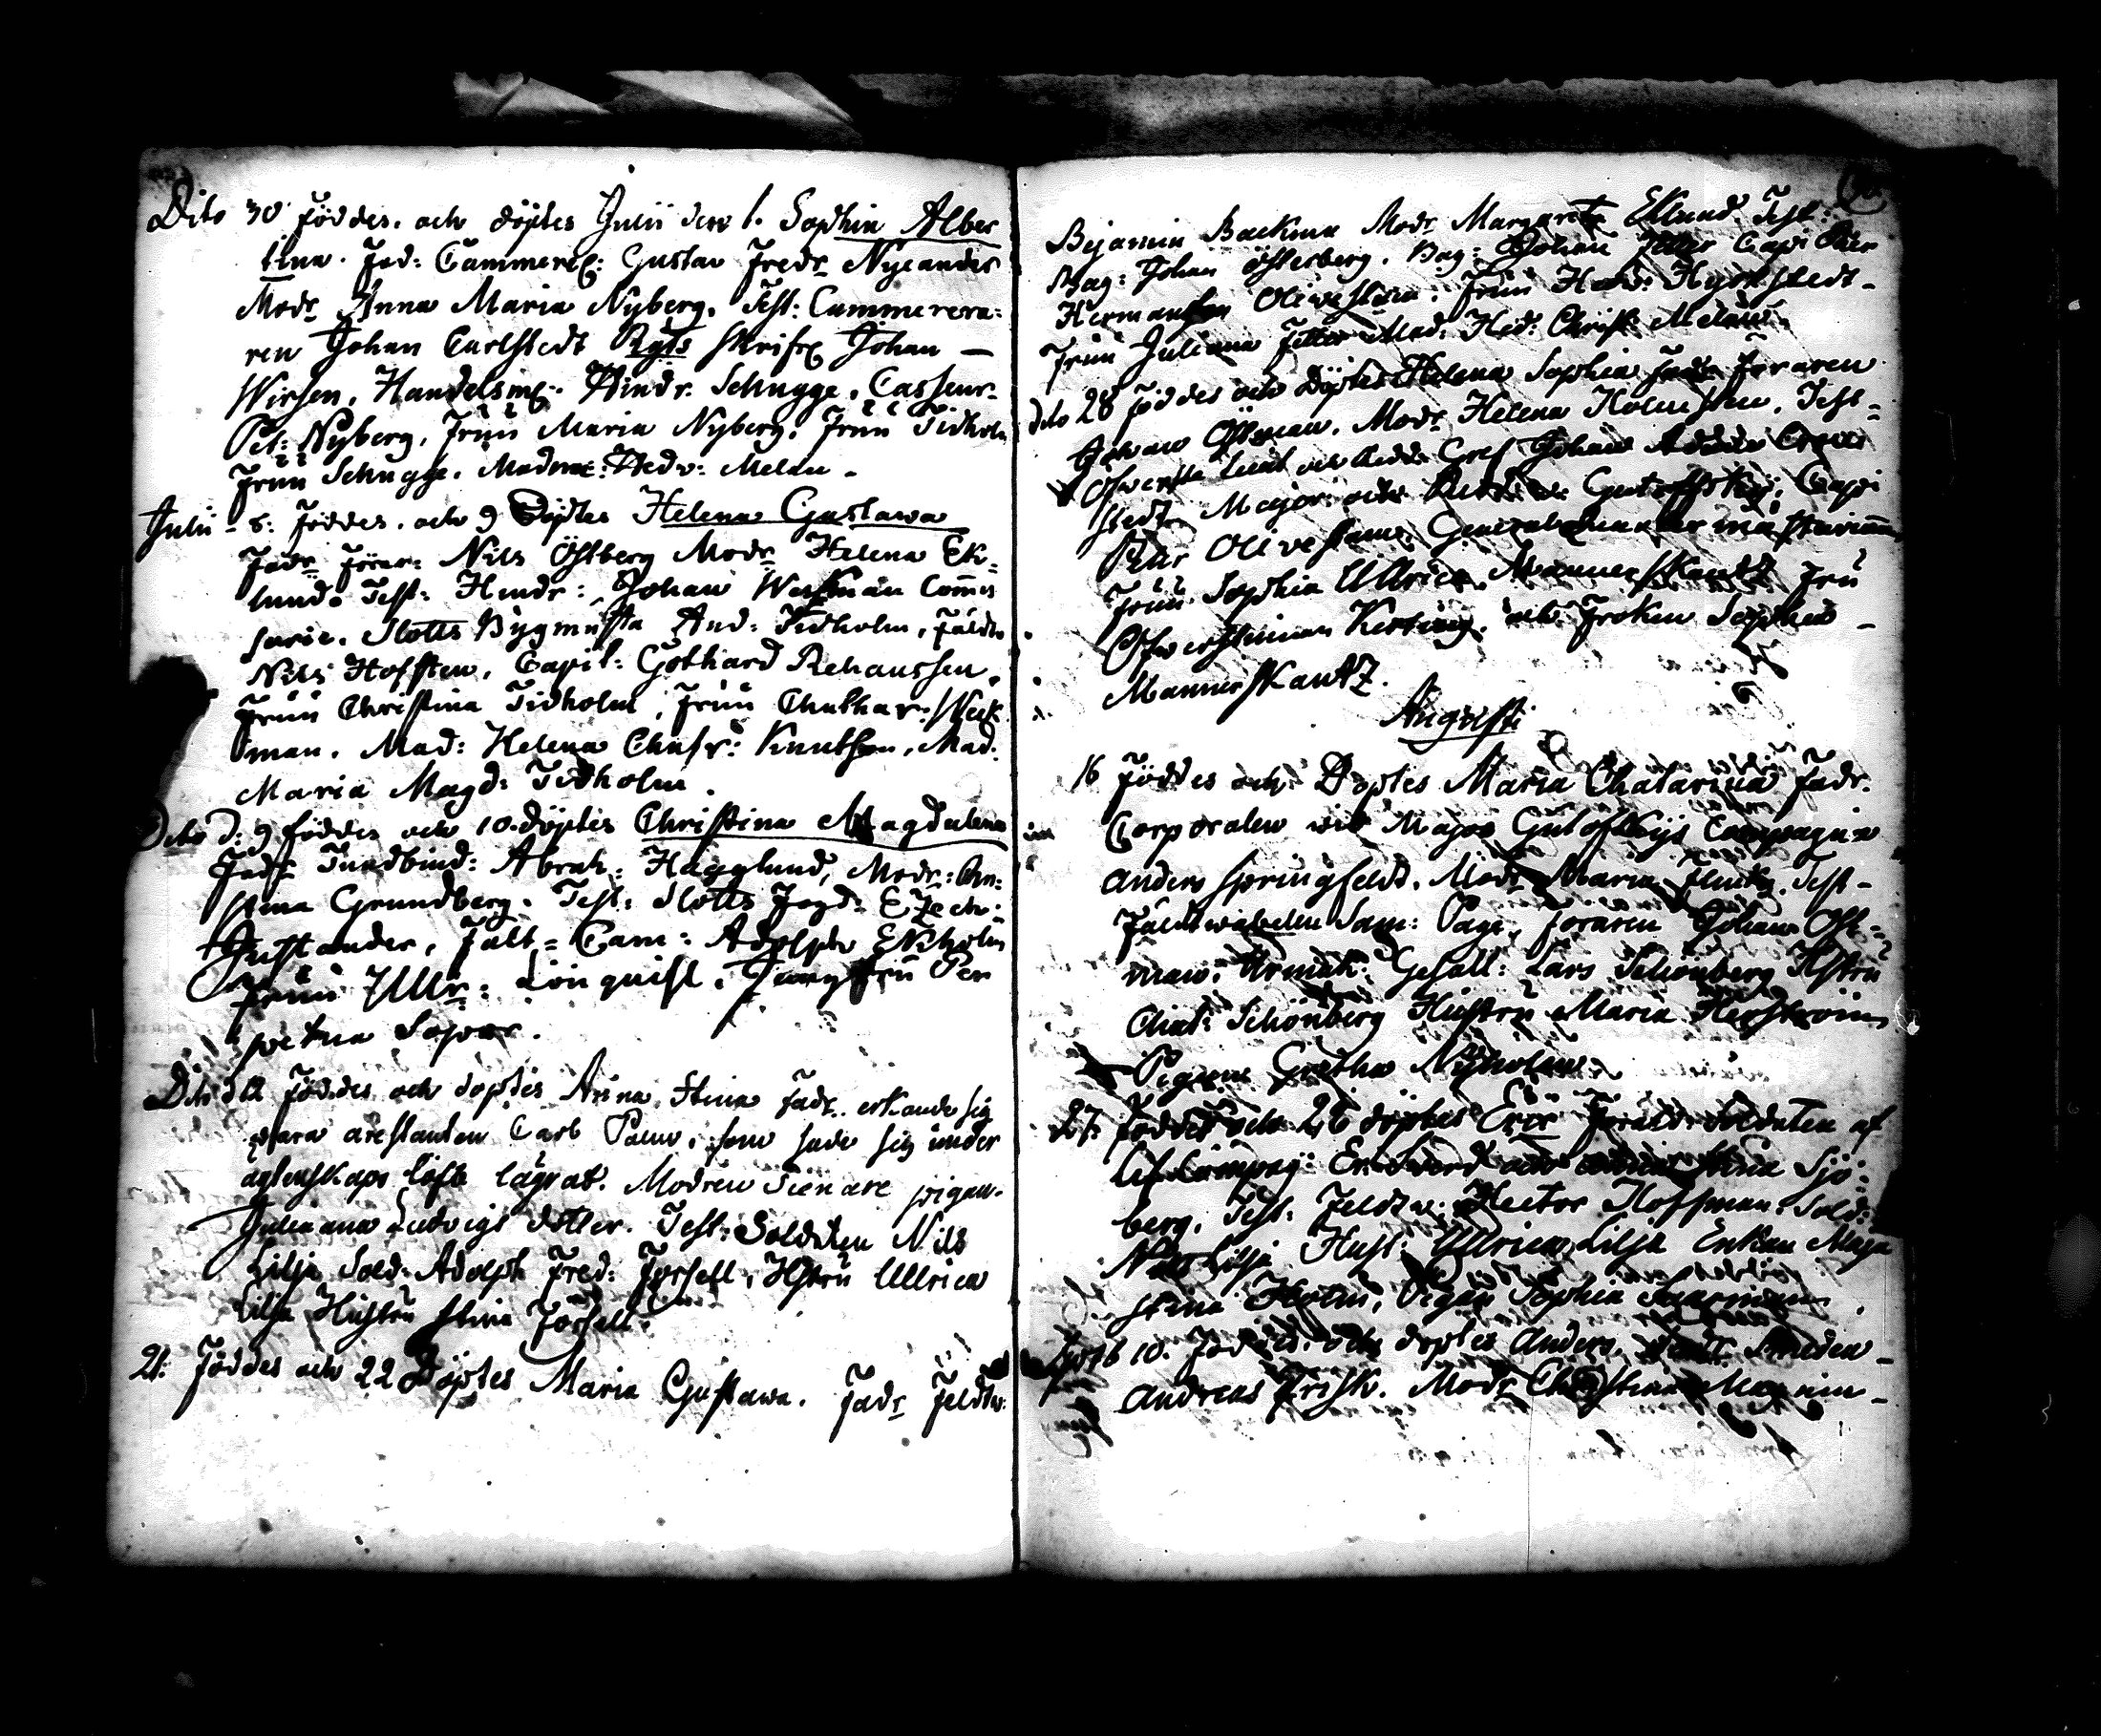 Dito 30 föddes. och döptes Julii den 1. Sophia Alber
tina. Fad: Cammere: Gustav Fredr Nycander
Modr Anna Maria Nyberg. Test: Cammerera-
ren Johan Carlstedt Rgts Skrifr Johan —
Wirsen, Handelsm: Hindr. Schugge, Casseur-
Pet: Nyberg, Fruu Maria Nyberg, Fruu Tidholm
Fruu Schugge. Madme: Hedv: Melan -
Julii - 8: föddes. och 9 Döptes Helena Gustawa
Fadr Förar: Nils Östberg Modr Helena Ek-
lund. Test: Hindr: Johan Weckman Com̄es
sarie. Slotts Bygmästa And: Tidholm, Fäldtw
Nils Hoffsten, Capit: Gothard Rehaussen,
Fruu Christina Tidholm, Fruu Chathar: Weck
man. Mad: Helena Knutson, Mad.
Maria Magd: Tidholm.
Dito d: 9 föddes och 10. döptes Christina Magdalena
Fadr Tundbind: Abrah: Hägglund, Modr: Chri-
stina Grundberg. Test: Slotts Fogd: Ezech:
Gustander, Fält=Cam: Adolph Ekholm
Fruu Ullr: Lönquist, Jungfru Per
petua
Dito d 12 föddes och döptes Anna Stina Fadr. erkände sig
wara arestanten Carl Palm, som sade sig under
agtenskaps löfte lägrat. Modren Tienare pigan.
Juliana Ludvigs dotter. Test: Soldaten Nils
Lilja Sold: Adolph Fred: Forsell, Hstru Ullrica
Lilja Hustru Stina Forsell.
21: Föddes och 22 Döptes Maria Gustawa. Fadr Feldtw:
Bejamin Backman Modr Margareta Eklund Test:
Bag: Johan Österberg. Bag: Johan Capi
Hermansson Olivestam: Fruu Hedv: Hyckstedt-
Fruu Juliana Mad: Hed: Christ: Melan.
dito 28 föddes och Döptes Helena Sophia Fadr Föraren
Johan Östman. Modr Helena Holmsten. Test-
Öfverste Leut och Ridd: Gref Johan Cron
stedt. Major och Gutoffskÿ; Capi
Olivestam. General
Fruu Sophia Ullrica Mannerskantz Fru
Öfverstinnan och Froken Sophia -
Mannerskantz.
Augusti
16 Föddes och Döptes Maria Chatarina Fadr.
Corporalen wid Major Gutofskijs Compagnie
Anders Springfeldt. Modr Maria Test-
Fältwäbelen Sam: Page, Föraren Johan Öst-
man, Gesäll: Lars Schönberg Hstru
Chat: Schönberg Hustru Maria
Pigan Gretha Nÿholm.
27. Föddes och 28 döptes Eric Soldaten af
Lif Compag: Er: Swerd och Stina Sjö-
berg. Test: Feldtw: Hector Hoffman. Sold:
Nils Lilja Hust: Ullrica Lilja Enkan Maja
Stina Holm, Pigan Sophia
10. Föddes och döptes Anders. Smeden -
Andreas Frisk. Modr Christina